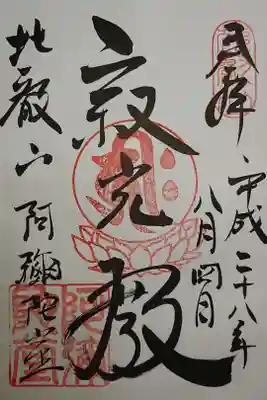 奉拝 平成二十八年
八月四日
寂光殿
比叡山 阿彌陀堂